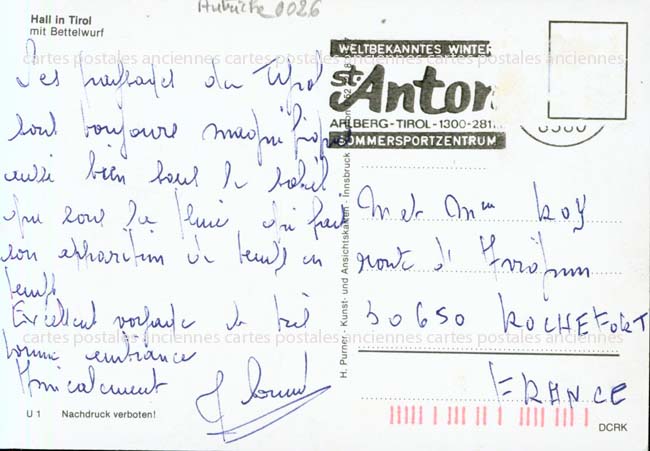 Autriche 0026
Hall in Tirol
mit Bettelwurf
Les paysages du Tirol
sont toujours magnifiques
aussi bien sous le soleil
que sous la pluie qui fait
son apparition de temps en
temps
Excellent voyage et très
bonne ambiance
Amicalement
U 1 Nachdruck verboten!
WELTBEKANNTES WINTER
St. Anton
ARLBERG - TIROL - 1300-281
SOMMERSPORTZENTRUM
H. Purner - Kunst- und Ansichtskarten - Innsbruck
M et Mme ROY
route d'
30650 ROCHEFORT
FRANCE
DCRK
cartes postales anciennes cartes postales anciennes cartes postales anciennes